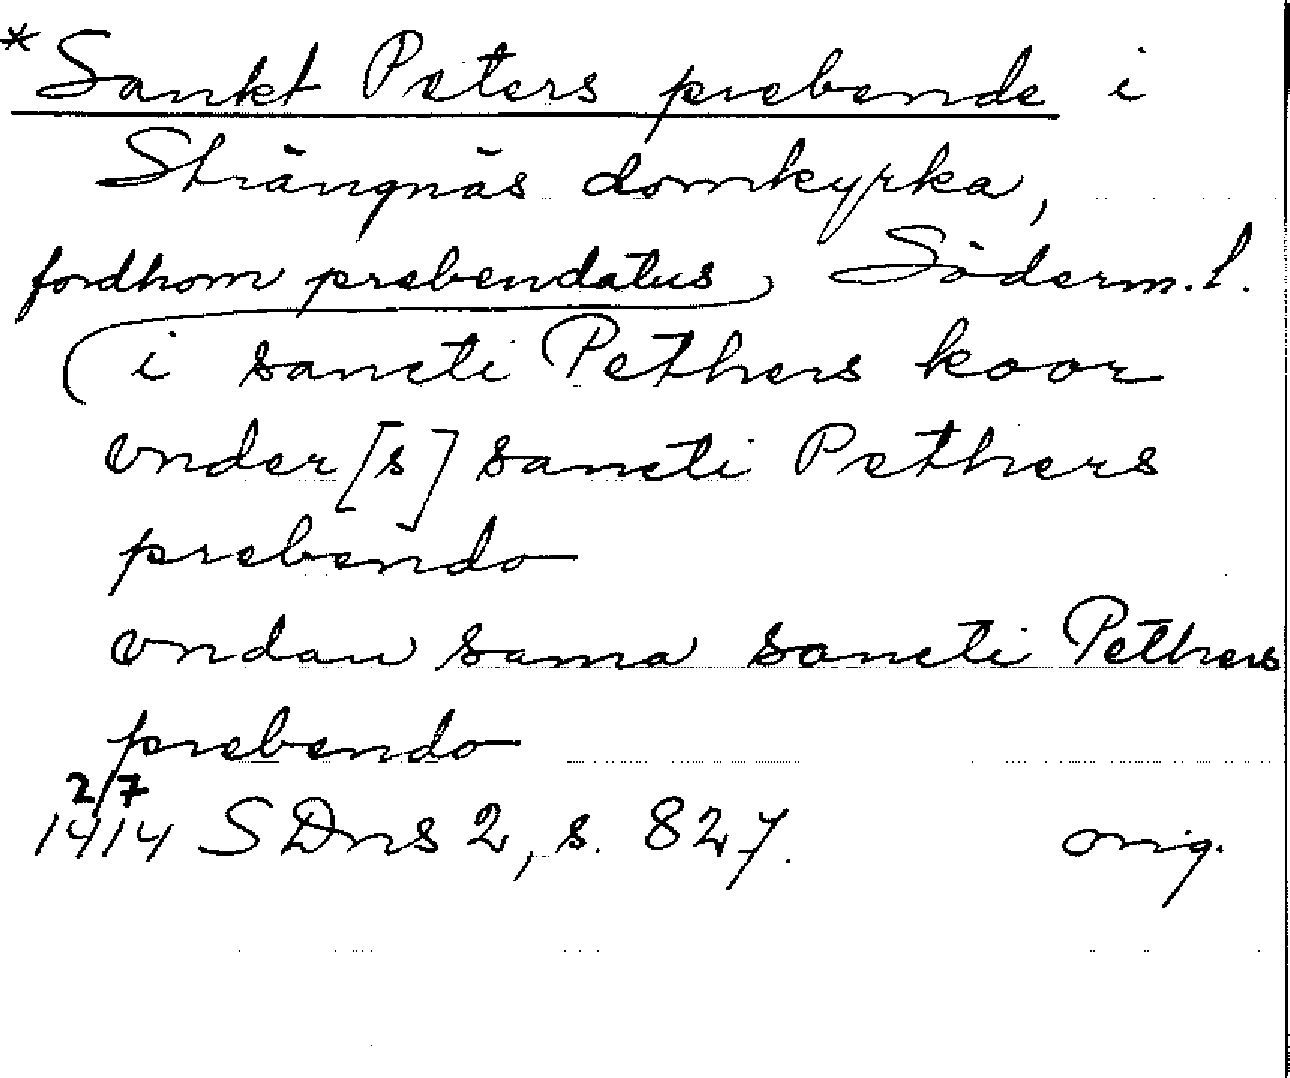 *Sankt Peters prebende i
Strängnäs domkyrka,
fordhom prebendatus, Söderm.l.
i sancti Pethers koor
vnder[s] sancti Pethers
prebendo
vndan sama sancti Pethers
prebendo
2/7
1414 SDns 2, s. 827. orig.